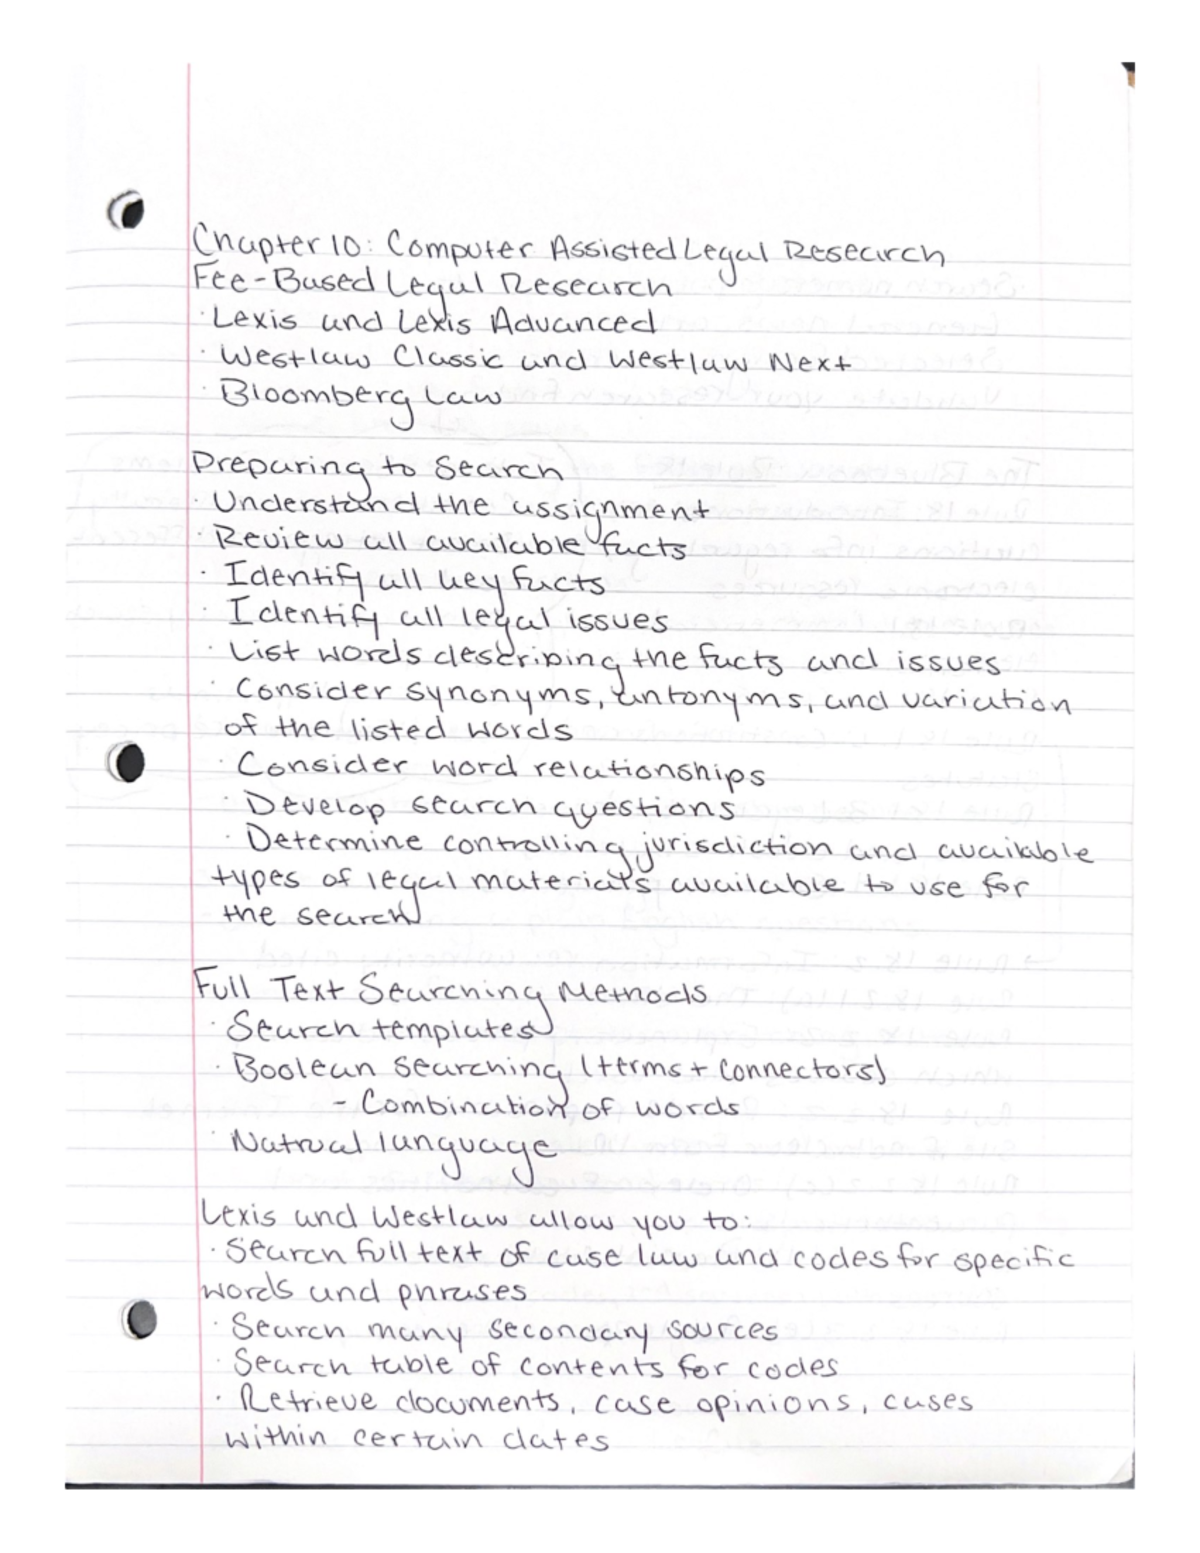 Chapter 10: Computer Assisted Legal Research
Fee-Based Legal Research
· Lexis and Lexis Advanced
· Westlaw Classic and Westlaw Next
· Bloomberg Law
Preparing to Search
· Understand the assignment
· Review all available facts
· Identify all key facts
· Identify all legal issues
· List words describing the facts and issues
· Consider synonyms, antonyms, and variation
of the listed words
· Consider word relationships
· Develop search questions
· Determine controlling jurisdiction and available
types of legal materials available to use for
the search
Full Text Searching Methods
· Search templates
· Boolean searching (terms + connectors)
- Combination of words
· Natrual language
Lexis and Westlaw allow you to:
· Search full text of case law and codes for specific
words and phrases
· Search many secondary sources
· Search table of contents for codes
· Retrieve documents, case opinions, cases
within certain dates